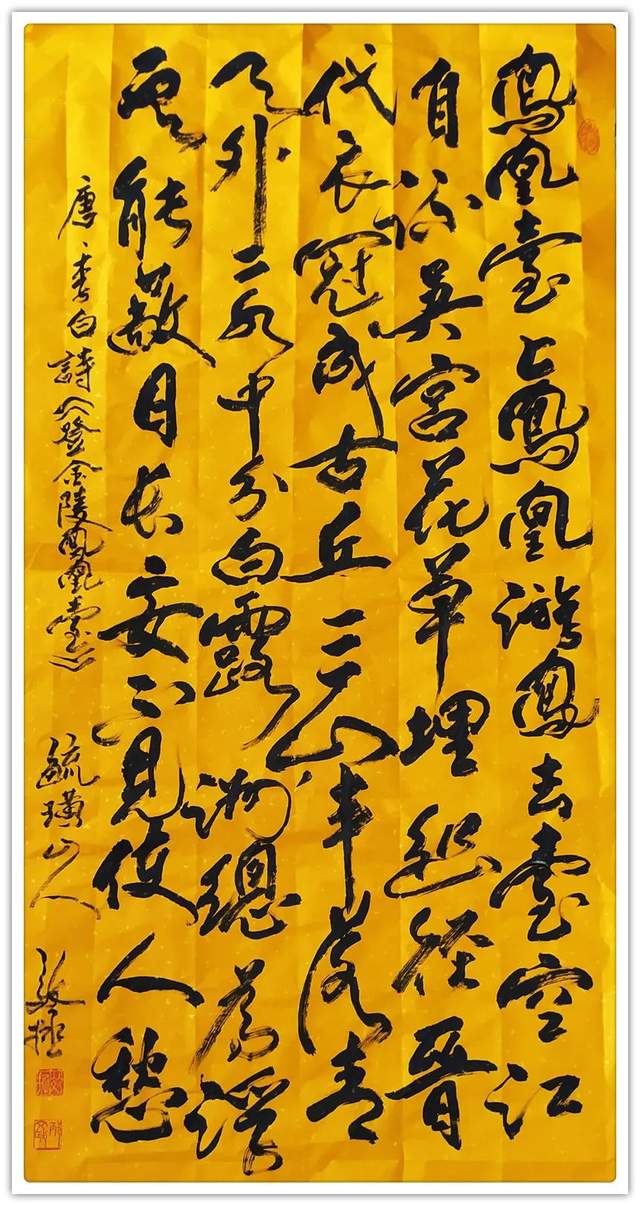 鳳凰臺上鳳凰游鳳去臺空江
自流吴宮花草埋幽徑晉
代衣冠成古丘三山半落青
天外二水中分白露洲總為浮
雲能蔽日長安不見使人愁
唐、李白詩《登金陵鳳凰臺》 毓璜山人